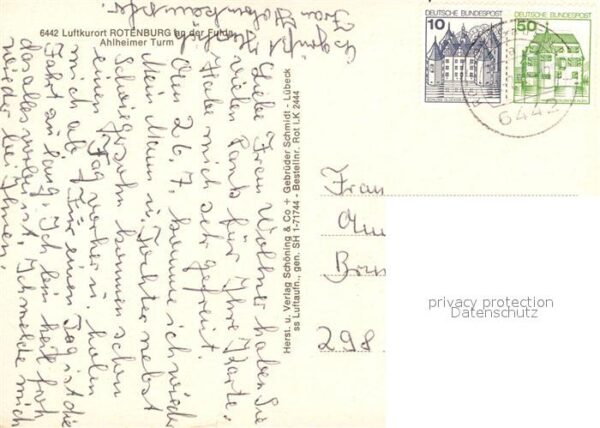 6442 Luftkurort ROTENBURG an der Fulda
Ahlheimer Turm
Liebe Frau Woltner haben Sie
vielen Dank für Ihre Karte.
Habe mich sehr gefreut.
Am 26.7. komme ich wieder
Mein Mann u. Tochter nebst
Schwiegersohn kommen schon
einen Tag vorher u. holen
mich ab. Für einen Tag ist die
Fahrt zu lang. Ich bin heil froh
das alles vorbei ist. Ich melde mich
wieder bei Ihnen.
Es grüßt
Frau
Herst. u. Verlag Schöning & Co + Gebrüder Schmidt - Lübeck
ss Luftaufn., gen. SH 1-71744 - Bestellnr. Rot LK 2444
DEUTSCHE BUNDESPOST
10
DEUTSCHE BUNDESPOST
50
6442
Frau
298
privacy protection
Datenschutz